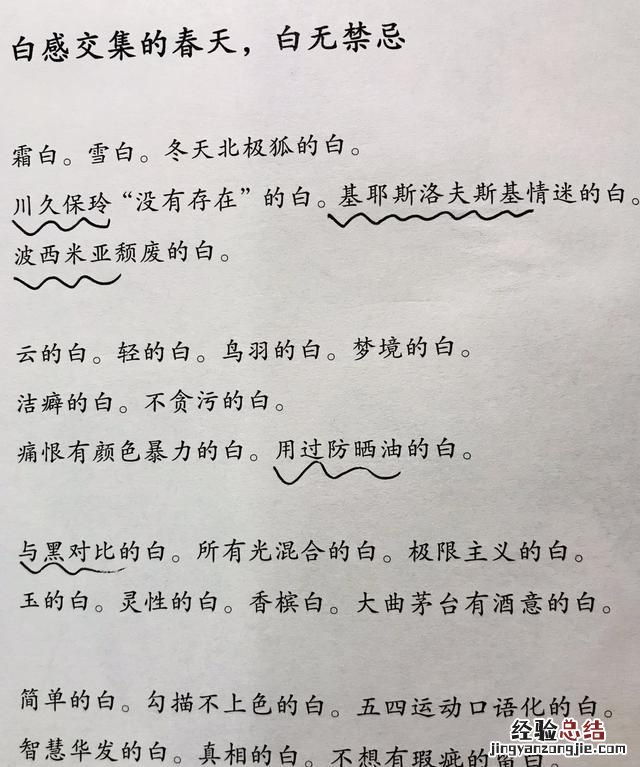 白感交集的春天，白无禁忌
霜白。雪白。冬天北极狐的白。
川久保玲“没有存在”的白。基耶斯洛夫斯基情迷的白。
波西米亚颓废的白。
云的白。轻的白。鸟羽的白。梦境的白。
洁癖的白。不贪污的白。
痛恨有颜色暴力的白。用过防晒油的白。
与黑对比的白。所有光混合的白。极限主义的白。
玉的白。灵性的白。香槟白。大曲茅台有酒意的白。
简单的白。勾描不上色的白。五四运动口语化的白。
智慧华发的白。真相的白。不想有瑕疵的
经验总结
jingyanzongjie.com